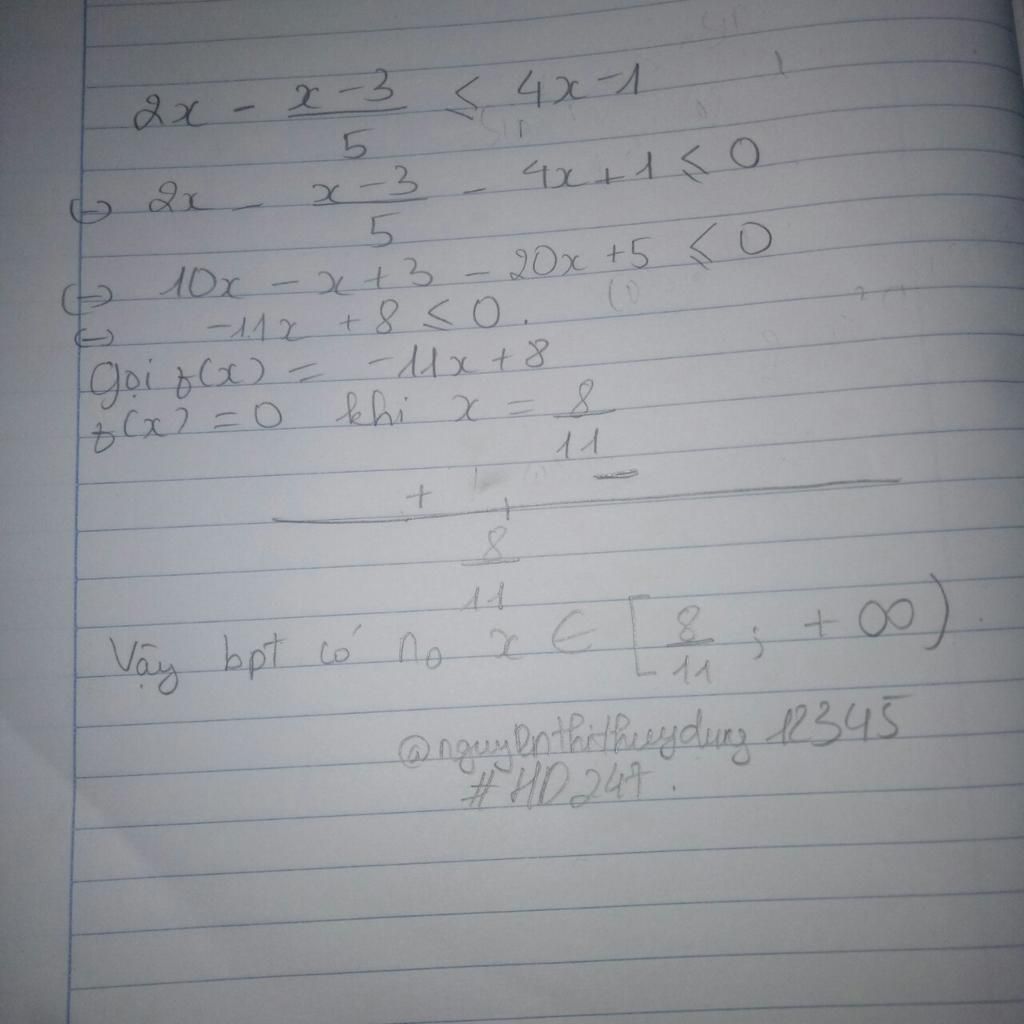 2x - (x-3)/5 ≤ 4x-1
(=) 2x - (x-3)/5 - 4x+1 ≤ 0
(=) 10x - x+3 - 20x+5 ≤ 0
(=) -11x +8 ≤ 0.
Gọi f(x) = -11x+8
f(x) = 0 khi x = 8/11
+ -
8/11
Vậy bpt có no x ∈ [8/11 ; +∞).
@nguyenthithuydung 12345
#HD247.